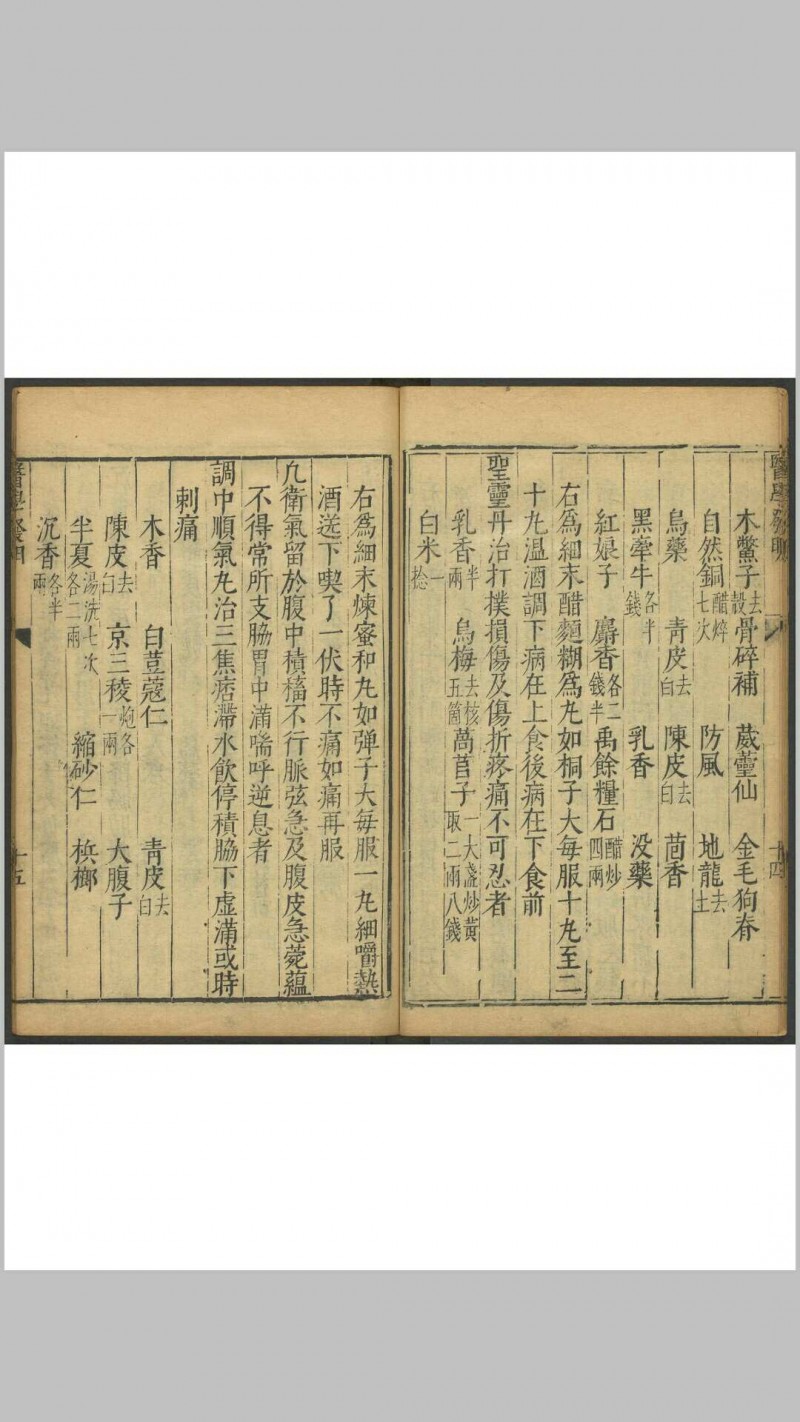 醫學發明
十四
木鱉子去殼 骨碎補 葳靈仙 金毛狗脊
自然銅醋焠七次 防風 地龍去土
烏藥 青皮去白 陳皮去白 茴香
黑牽牛各半錢 乳香 没藥
紅娘子 麝香各二錢半 禹餘糧石醋炒四兩
右爲細末醋麵糊爲丸如桐子大每服十丸至二
十丸温酒調下病在上食後病在下食前
聖靈丹治打撲損傷及傷折疼痛不可忍者
乳香半兩 烏梅去核五箇 萵苣子一大盞炒黃取二兩八錢
白米一捻
右爲細末煉蜜和丸如弹子大每服一丸細嚼熱
酒送下喫了一伏時不痛如痛再服
凡衛氣留於腹中積稸不行脈弦急及腹皮急菀蘊
不得常所支脇胃中滿喘呼逆息者
調中順氣丸治三焦痞滯水飲停積脇下虚滿或時
刺痛
木香 白荳蔻仁 青皮去白
陳皮去白 京三稜炮各一兩 大腹子
半夏湯洗七次各二兩 縮砂仁 梹榔
沉香各半兩
醫學發明
十五